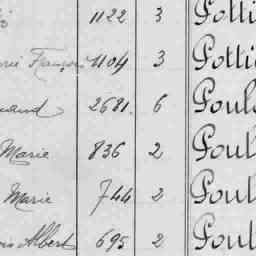 1122 3 Potti
rie François 1104 3 Potti
nand 2681. 6 Poul
Marie 836 2 Poul
Marie 744 2 Poul
ois Albert 695 2 Poul